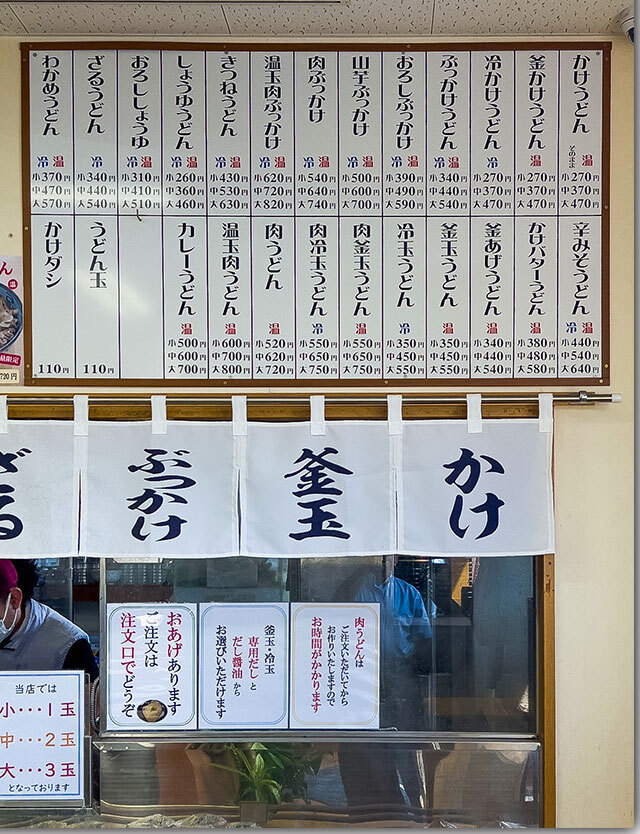 かけうどん そのまま 温 小270円 中370円 大470円
釜かけうどん 温 小270円 中370円 大470円
冷かけうどん 冷 小270円 中370円 大470円
ぶっかけうどん 冷 温 小340円 中440円 大540円
おろしぶっかけ 冷 温 小390円 中490円 大590円
山芋ぶっかけ 冷 温 小500円 中600円 大700円
肉ぶっかけ 冷 温 小540円 中640円 大740円
温玉肉ぶっかけ 冷 温 小620円 中720円 大820円
きつねうどん 冷 温 小430円 中530円 大630円
しょうゆうどん 冷 温 小260円 中360円 大460円
おろししょうゆ 冷 温 小310円 中410円 大510円
ざるうどん 冷 小340円 中440円 大540円
わかめうどん 冷 温 小370円 中470円 大570円
辛みそうどん 冷 温 小440円 中540円 大640円
かけバターうどん 温 小380円 中480円 大580円
釜あげうどん 温 小340円 中440円 大540円
釜玉うどん 温 小350円 中450円 大550円
冷玉うどん 冷 小350円 中450円 大550円
肉釜玉うどん 温 小550円 中650円 大750円
肉冷玉うどん 冷 小550円 中650円 大750円
肉うどん 温 小520円 中620円 大720円
温玉肉うどん 温 小600円 中700円 大800円
カレーうどん 温 小500円 中600円 大700円
うどん玉 110円
かけダシ 110円
ん
温
720円
かけ
釜玉
ぶっかけ
ざる
肉うどんは
ご注文いただいてから
お作りいたしますので
お時間がかかります
釜玉・冷玉
専用だしと
だし醤油から
お選びいただけます
おあげあります
ご注文は
注文口でどうぞ
当店では
小・・・1玉
中・・・2玉
大・・・3玉
となっております